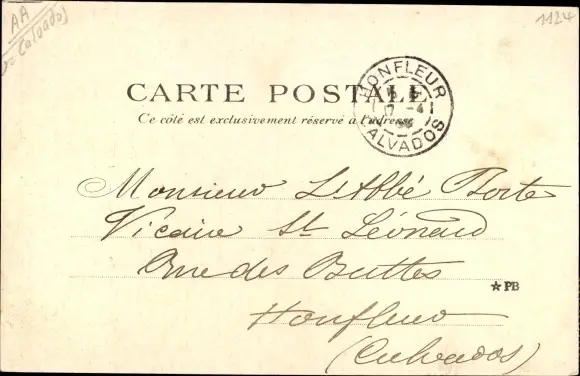 AA
Calvados
1124
CARTE POSTALE
Ce côté est exclusivement réservé à l'adresse
HONFLEUR
CALVADOS
Monsieur L'Abbé Porte
Vicaire St Léonard
Rue des Buttes
★PB
Honfleur
(Calvados)